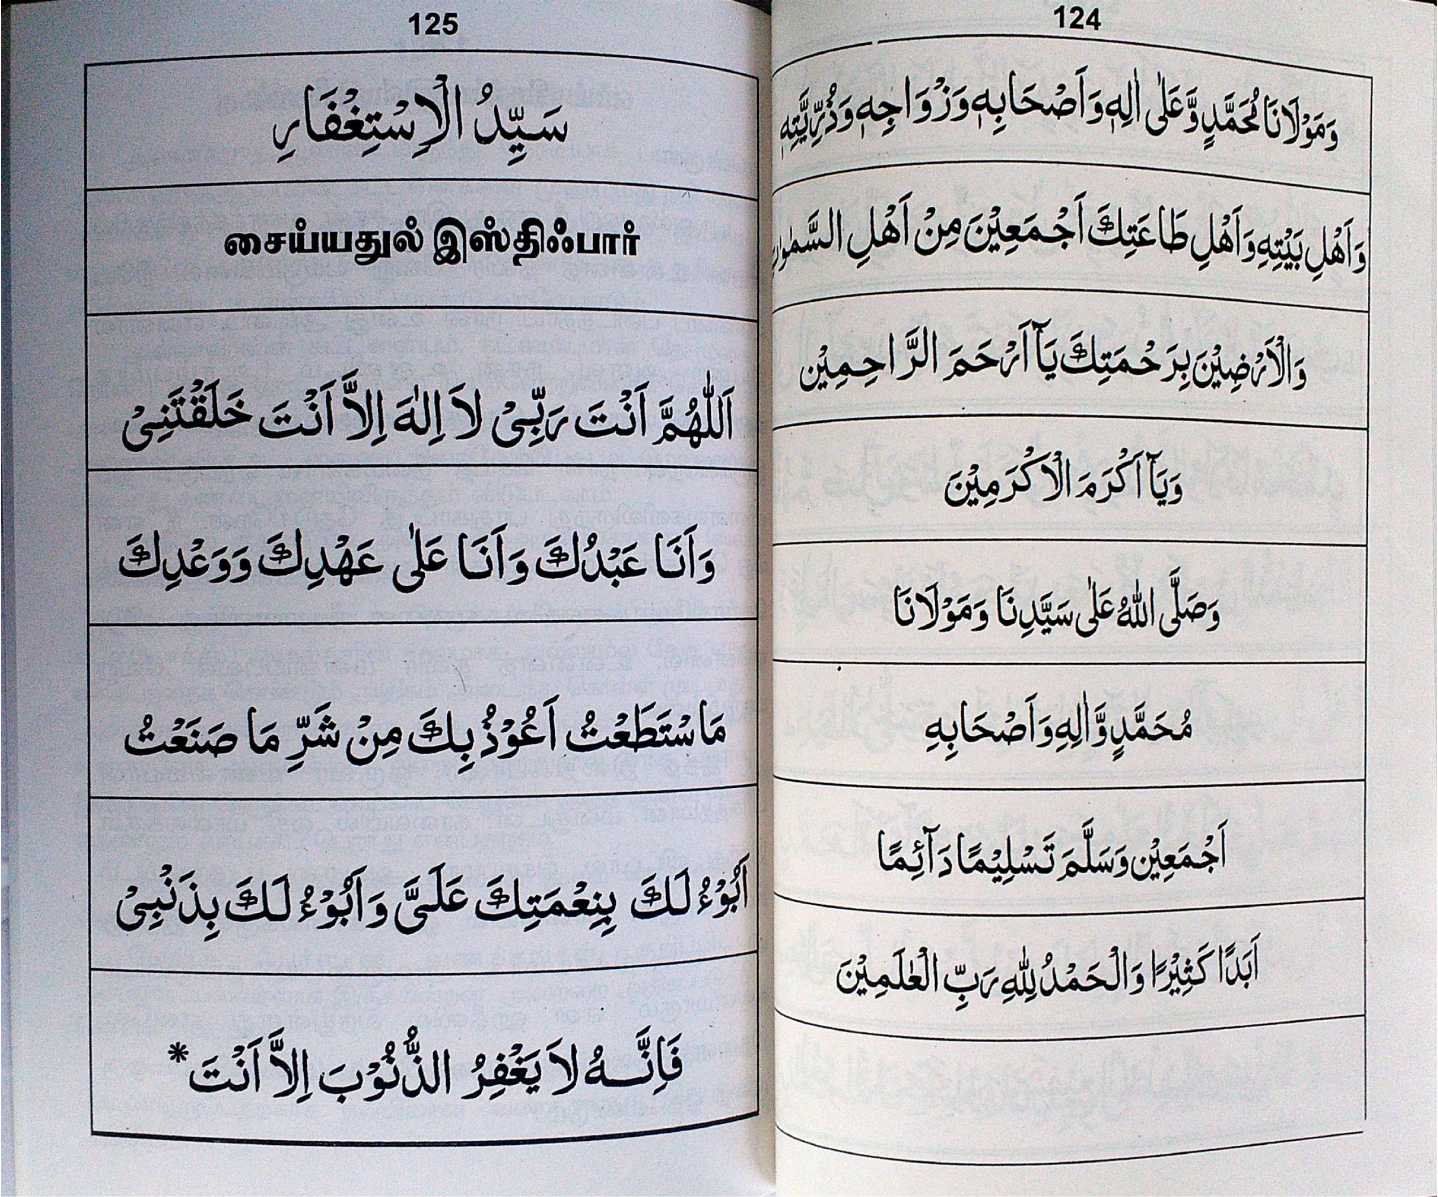 124
وَمَوْلَانَا مُحَمَّدٍ وَّعَلٰى اٰلِهٖ وَاَصْحَابِهٖ وَزْوَاجِهٖ وَذُرِّيَّتِهٖ
وَاَهْلِ بَيْتِهِ وَاَهْلِ طَاعَتِكَ اَجْمَعِيْنَ مِنْ اَهْلِ السَّمٰوٰتِ
وَالْاَرْضِيْنَ بِرَحْمَتِكَ يَآ اَرْحَمَ الرَّاحِمِيْن
وَيَآ اَكْرَمَ الْاَكْرَمِيْنَ
وَصَلَّى اللهُ عَلٰى سَيَّدِنَا وَمَوْلَانَا
مُحَمَّدٍ وَّاٰلِهِ وَاَصْحَابِهِ
اَجْمَعِيْن وَسَلَّمَ تَسْلِيْمًا دَآئِمًا
اَبَدًا كَثِيْرًا وَالْحَمْدُ لِلّٰهِ رَبِّ الْعٰلَمِيْنَ
125
سَيِّدُ الْاِسْتِغْفَارِ
சைய்யதுல் இஸ்திஃபார்
اَللّٰهُمَّ اَنْتَ رَبِّىْ لَا اِلٰهَ اِلاَّ اَنْتَ خَلَقْتَنِىْ
وَاَنَا عَبْدُكَ وَاَنَا عَلٰى عَهْدِكَ وَوَعْدِكَ
مَاسْتَطَعْتُ اَعُوْذُ بِكَ مِنْ شَرِّ مَا صَنَعْتُ
اَبُوْءُ لَكَ بِنِعْمَتِكَ عَلَىَّ وَاَبُوْءُ لَكَ بِذَنْبِىْ
فَاِنَّهُ لاَ يَغْفِرُ الذُّنُوْبَ اِلاَّ اَنْتَ *